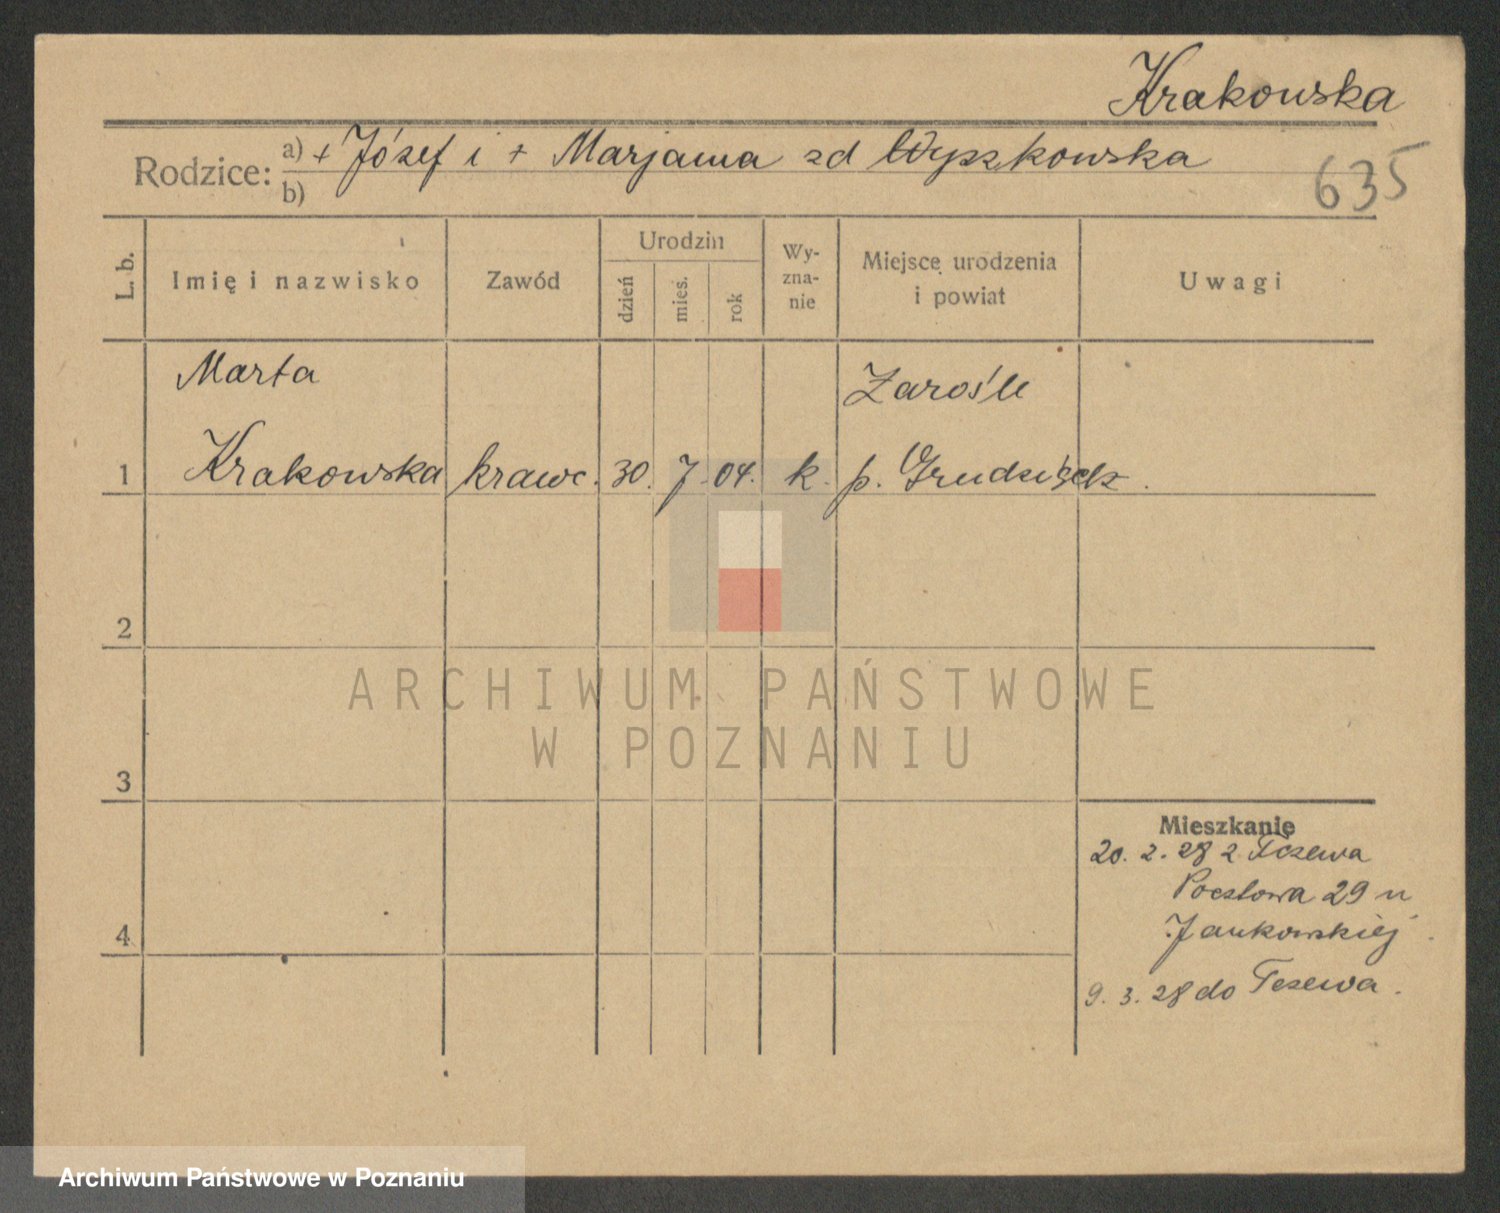 Krakowska
Rodzice: a) + Józef i + Marjanna zd Wyszkowska
b)
635
L. b.
Imię i nazwisko
Zawód
Urodzin
dzień
mies.
rok
Wy-
zna-
nie
Miejsce urodzenia
i powiat
Uwagi
Marta
Zarośle
1 Krakowska krawc. 30. 7. 04. k. p. Grudziądz.
2
ARCHIWUM PAŃSTWOWE
W POZNANIU
3
Mieszkanie
20. 2. 28 z Tczewa
Pocztowa 29 u
Jankowskiej.
4
9. 3. 28 do Tczewa.
Archiwum Państwowe w Poznaniu